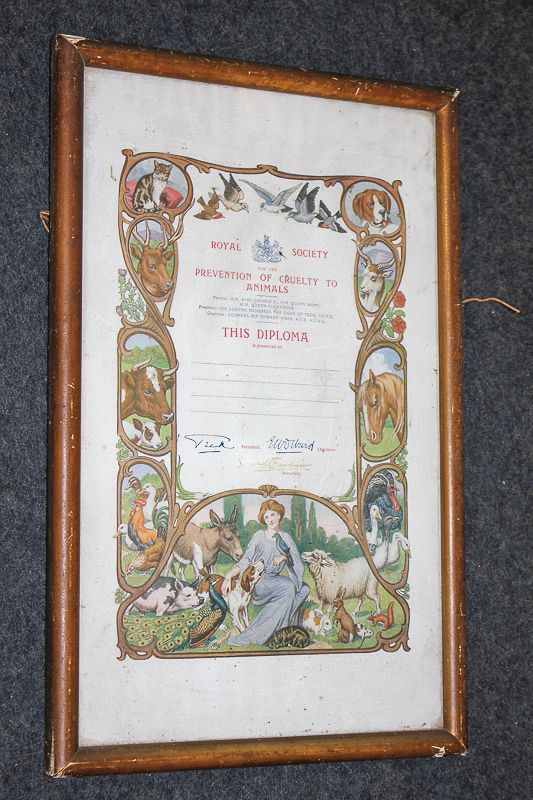 ROYAL SOCIETY
FOR THE
PREVENTION OF CRUELTY TO
ANIMALS
Patrons: H.M. KING GEORGE V., H.M. QUEEN MARY,
H.M. QUEEN ALEXANDRA.
President: HIS SERENE HIGHNESS THE DUKE OF TECK, G.C.V.O.
Chairman: COLONEL SIR EDWARD WARD, K.C.B. K.C.V.O.
THIS DIPLOMA
is presented to
Teck President. EWD Ward Chairman.
Secretary.